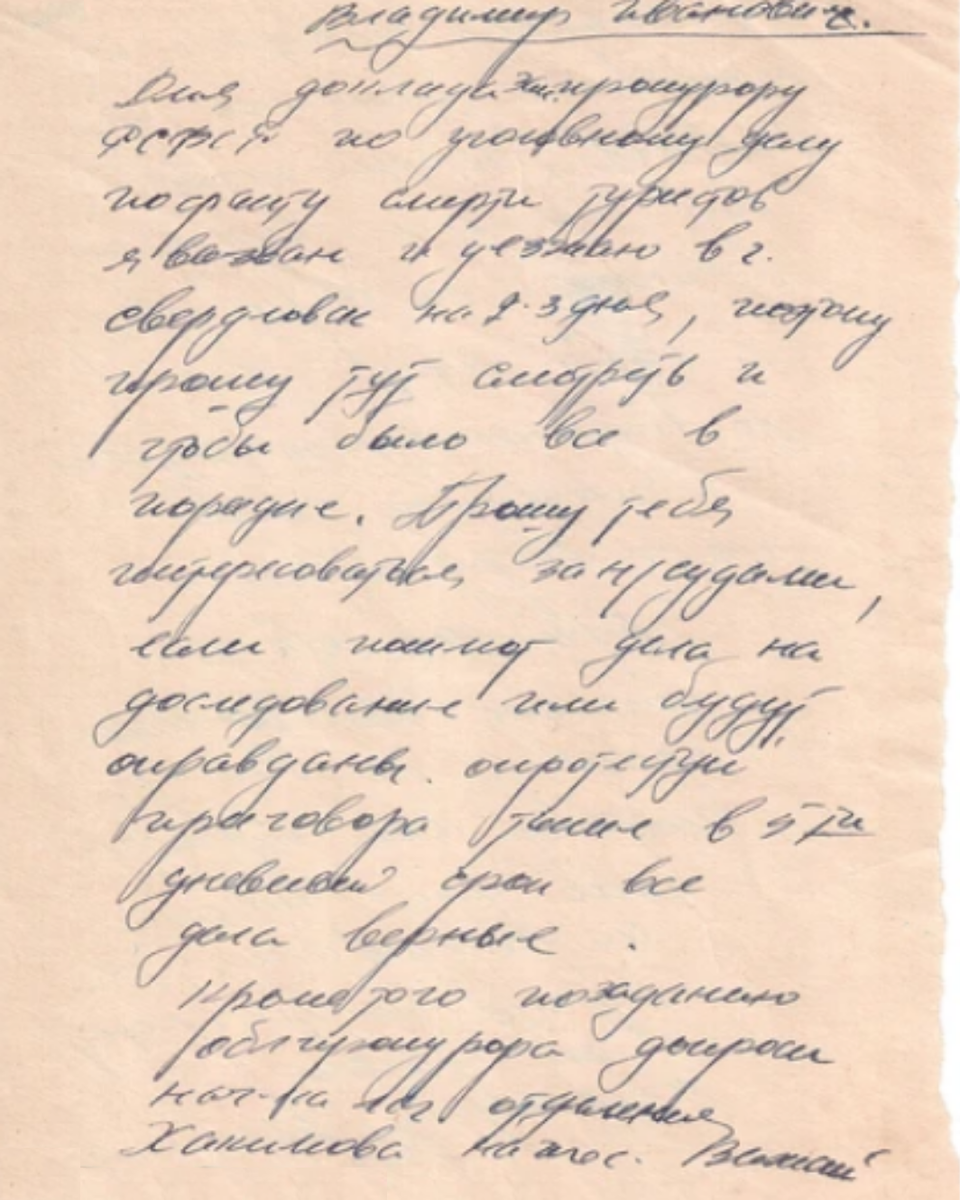 Владимир Иванович.
Для доклада зам. прокурору
РСФСР по уголовному делу
по факту смерти туристов
я вызван и уезжаю в г.
Свердловск на 2-3 дня, поэтому
прошу тут смотреть и
чтобы было все в
порядке. Прошу тебя
интересоваться, за н/судами,
если пошлют дела на
доследование или будут
оправданы опротестуй
приговора в 5ти
дневный срок все
дела верные.
Кроме того по заданию
облпрокурора допроси
нач-ка отделения
Хакимова